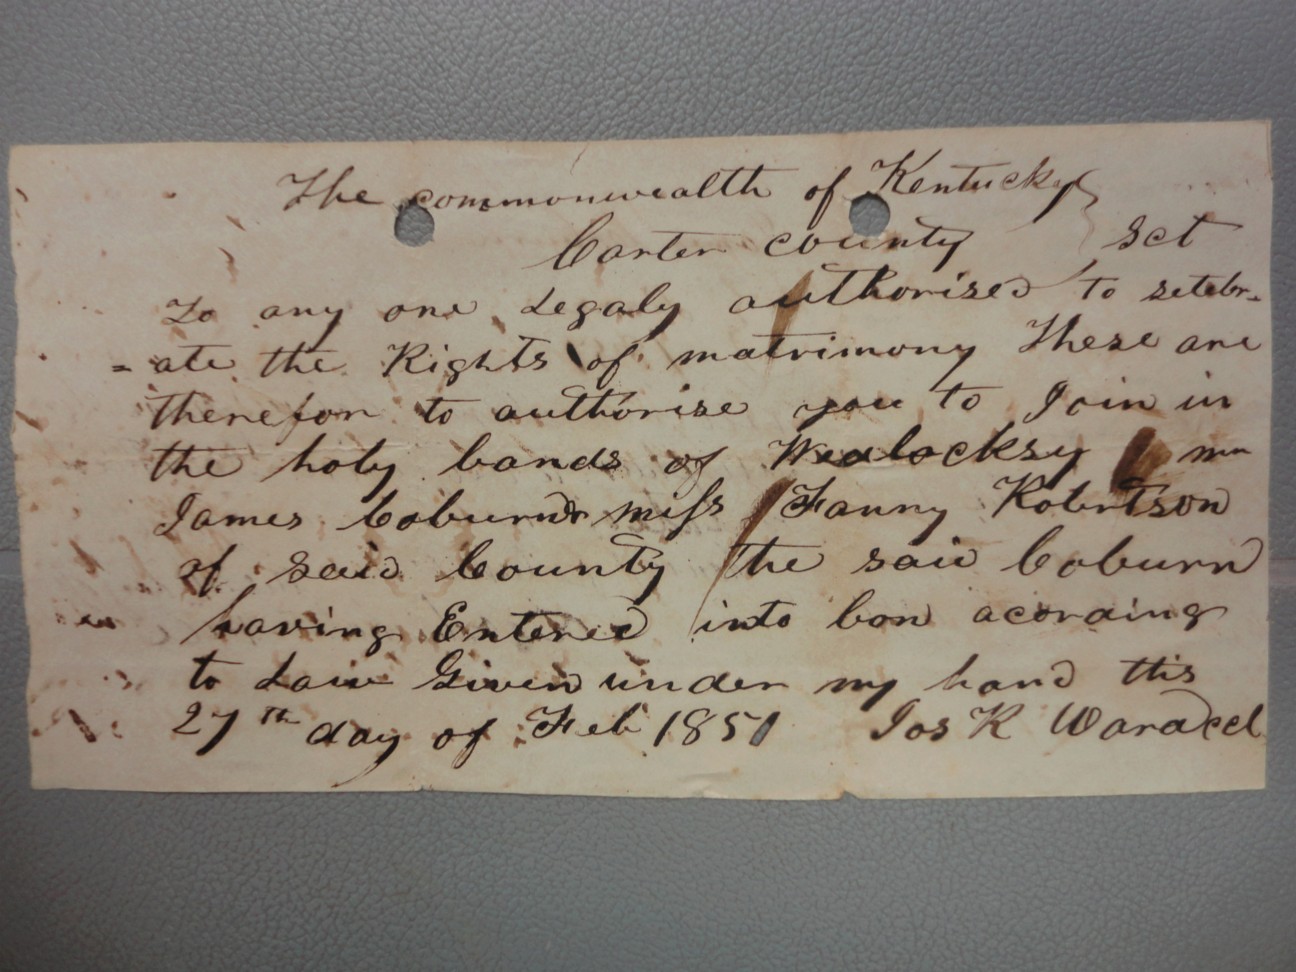 The commonwealth of Kentucky }
Carter county } Sct
To any one Legaly authorised to selebr-
= ate the Rights of matrimony These are
therefor to authorise you to Join in
the holy bands of Wedlock mr
James Coburn & miss Fanny Robertson
of said County the said Coburn
having Entered into bon acording
to Law Given under my hand this
27th day of Feb 1851 Jos K Ward ccl